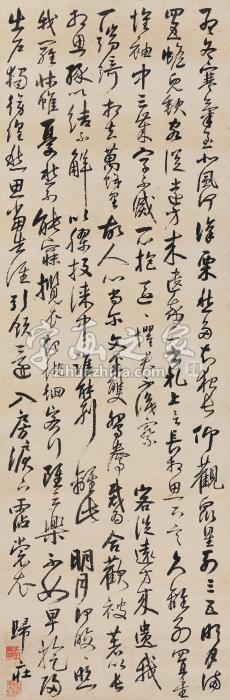 孟冬寒氣至北風何慘栗愁多知夜長仰觀眾星列三五明月滿
四五蟾兔缺客從遠方來遺我書札上言長相思下言久離別置書
懷袖中三歲字不滅一心抱區區懼君不識察 客從遠方來遺我
一端綺相去萬餘里故人心尚爾文綵雙鴛鴦裁為合歡被著以長
相思緣以結不解以膠投漆中誰能別離此 明月何皎皎照
我羅牀幃憂愁不能寐攬衣起徘徊客行雖云樂不如早旋歸
出戶獨彷徨愁思當告誰引領還入房淚下霑裳衣 歸莊